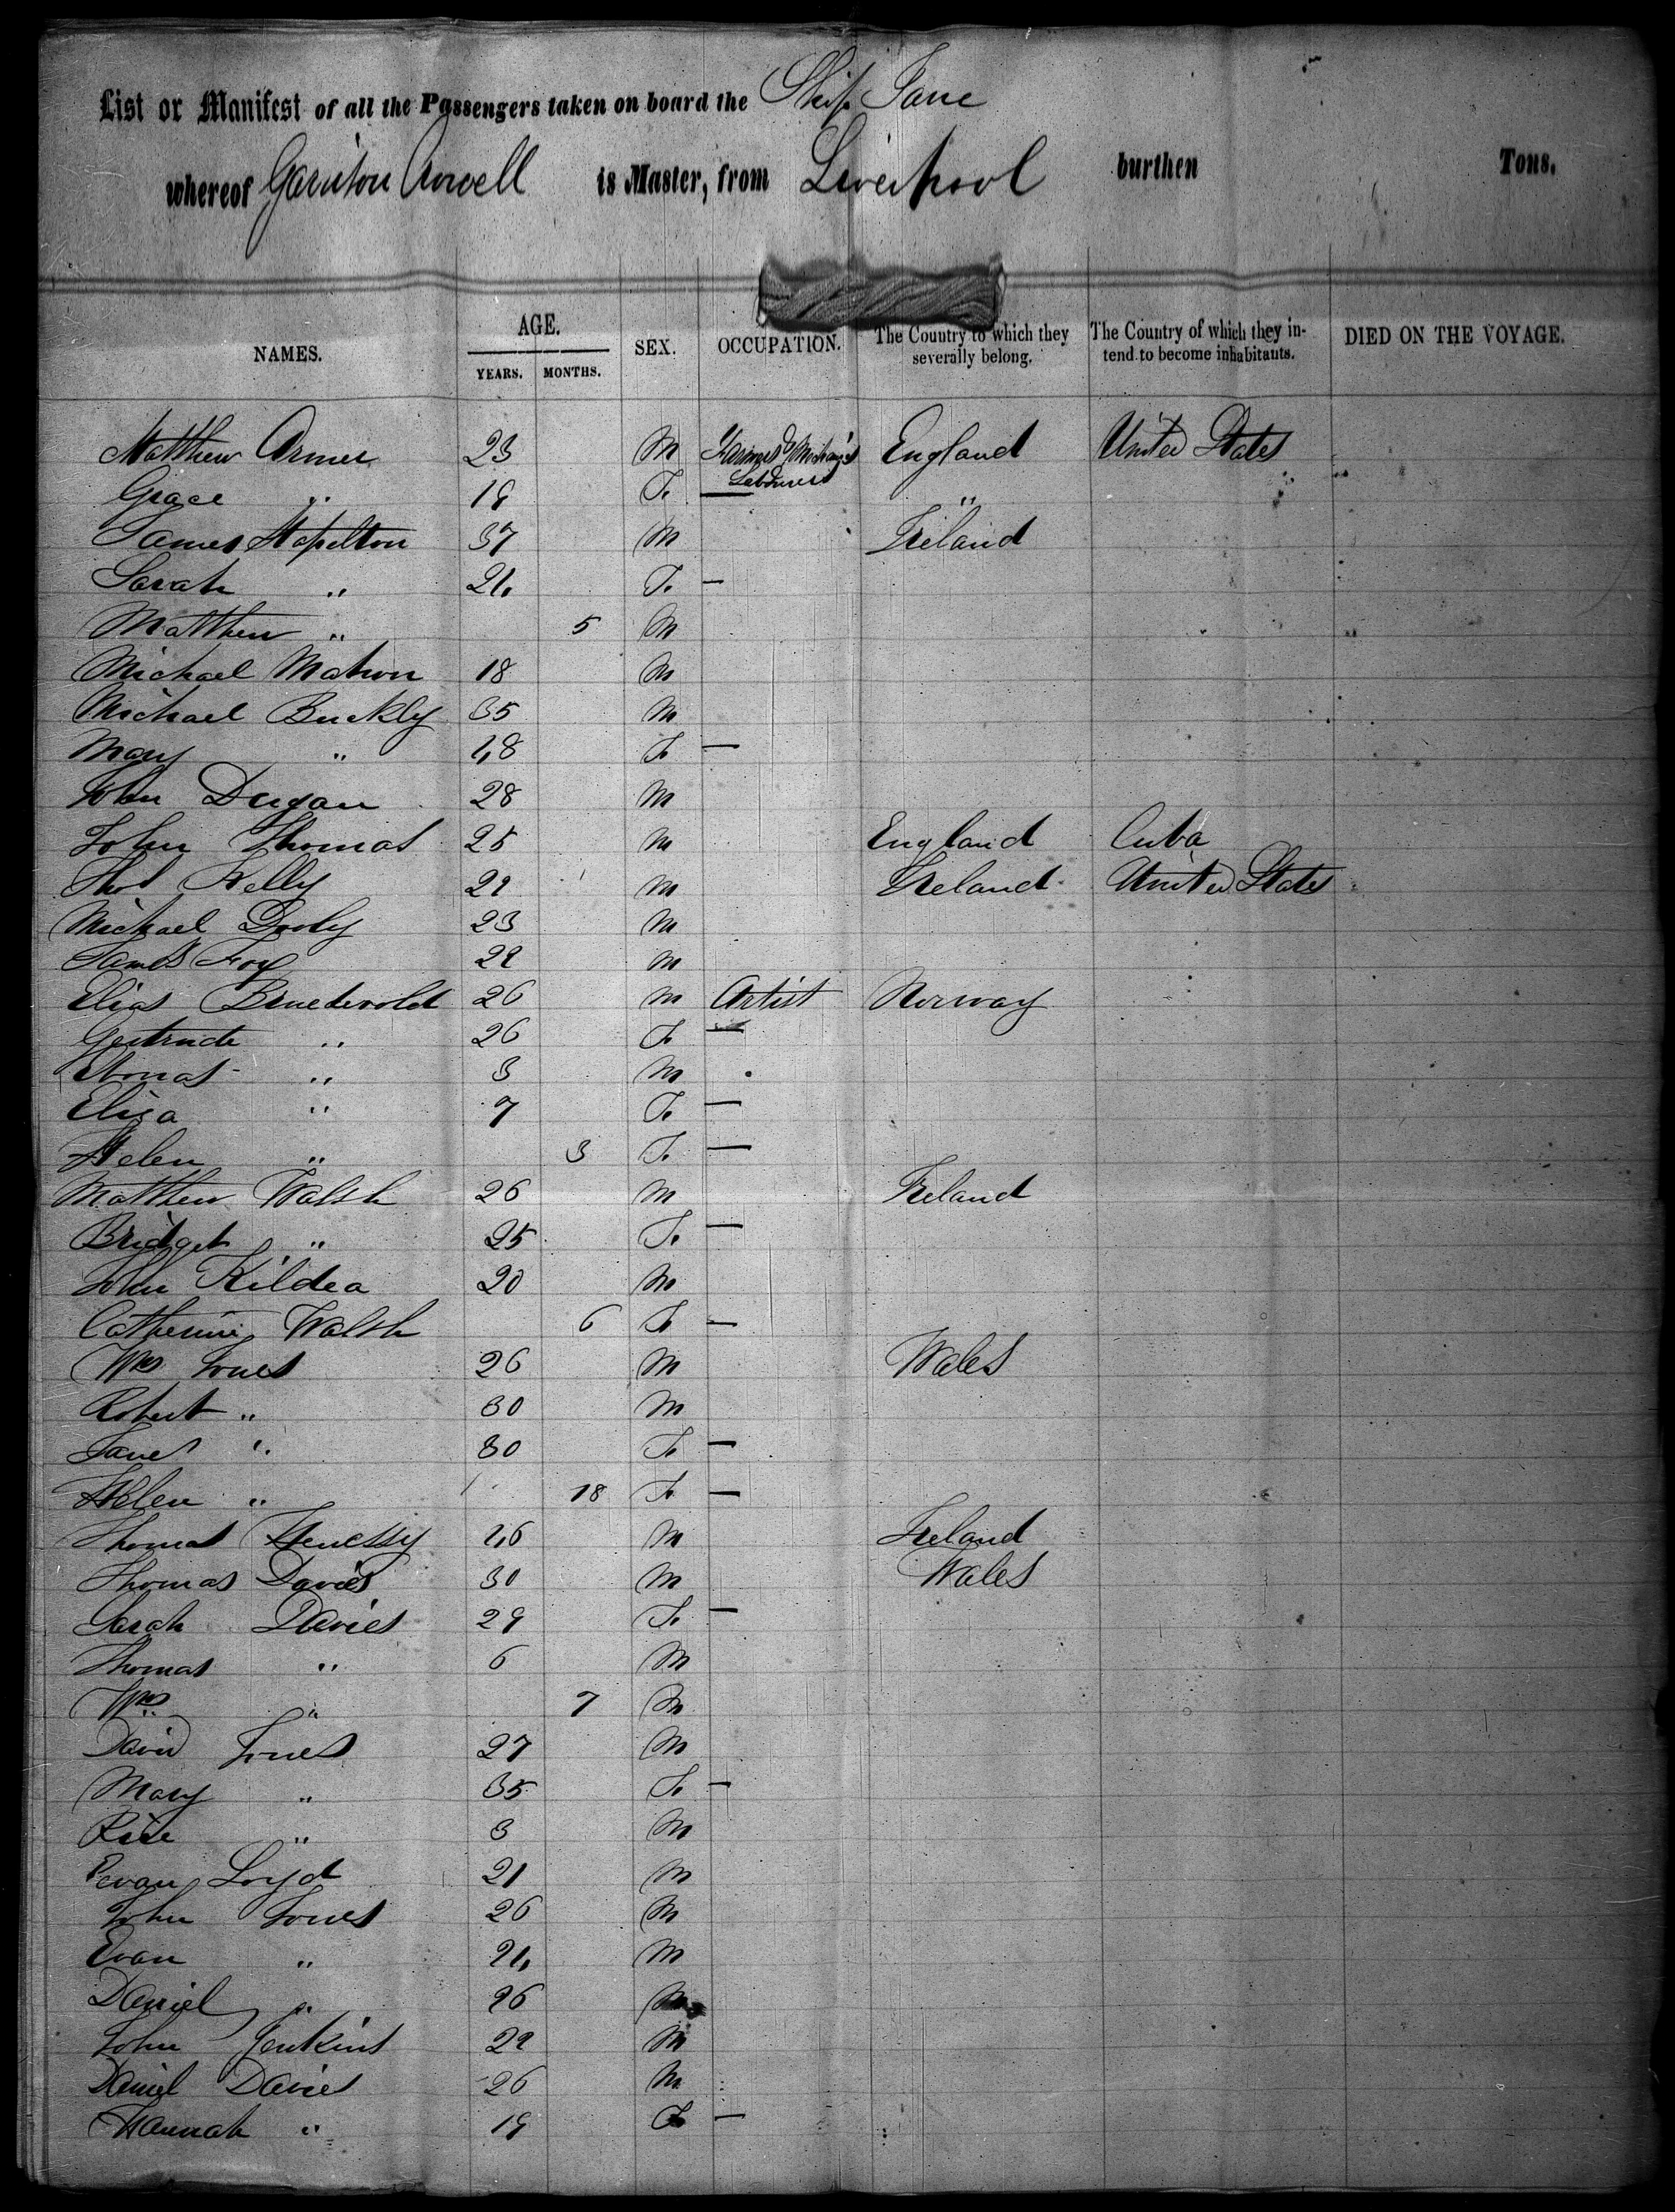 List or Manifest of all the Passengers taken on board the Ship Jane
whereof Crowell is Master, from Liverpool burthen Tons.
NAMES. AGE. YEARS. MONTHS. SEX. OCCUPATION. The Country to which they severally belong. The Country of which they intend to become inhabitants. DIED ON THE VOYAGE.
Matthew Armer 23 M England United States
Grace " 19 F. Labourers — "
James Stapelton 37 M Ireland
Sarah " 24 F. —
Matthew " 5 M
Michael Mahon 18 M
Michael Buckly 35 M
Mary " 48 F —
John Dugan 28 M
John Thomas 25 M England Cuba
Thos Kelly 22 M Ireland United States
Michael Dooly 23 M
James Foy 22 M
Elias 26 M Artist Norway
Gertrude " 26 F —
" 3 M
Eliza " 7 F. —
Helen " 3 F. —
Matthew Walsh 26 M Ireland
Bridget " 25 F. —
John Kildea 20 M
Catherine Walsh 6 F —
Wm Jones 26 M Wales
Robert " 30 M
Jane " 30 F —
Helen " 18 F —
Thomas Henessy 46 M Ireland
Thomas Davies 30 M Wales
Sarah Davies 29 F. —
Thomas " 6 M
Wm " 7 M
David Jones 27 M
Mary " 35 F. —
" 3 M
Evan Loyd 21 M
John Jones 26 M
Evan " 24 M
Daniel " 26 M
John Jenkins 22 M
Daniel Davies 26 M
Hannah " 19 F —